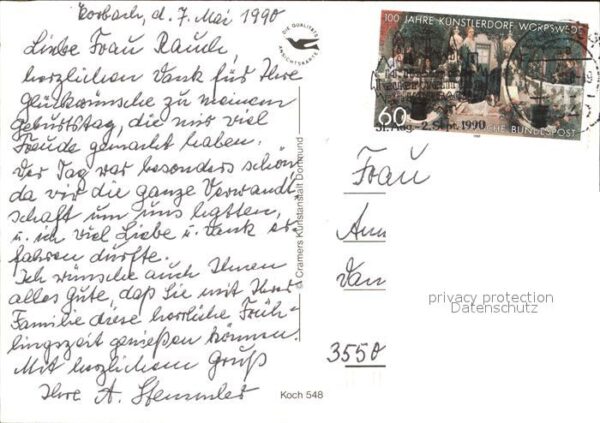 Korbach, d. 7. Mai 1990
Liebe Frau Rauch,
herzlichen Dank für Ihre
Glückwünsche zu meinem
Geburtstag, die mir viel
Freude gemacht haben.
Der Tag war besonders schön,
da wir die ganze Verwandt-
schaft um uns hatten,
u. ich viel Liebe u. Dank er-
fahren durfte.
Ich wünsche auch Ihnen
alles Gute, daß Sie mit Ihrer
Familie diese herrliche Früh-
lingszeit genießen können.
Mit herzlichem Gruß
Ihre A. Stemmler
DIE QUALITÄTS
ANSICHTSKARTE
© Cramers Kunstanstalt Dortmund
Koch 548
100 JAHRE KÜNSTLERDORF WORPSWEDE
60
DEUTSCHE BUNDESPOST
31. Aug. - 2. Sept. 1990
Frau
3550
privacy protection
Datenschutz